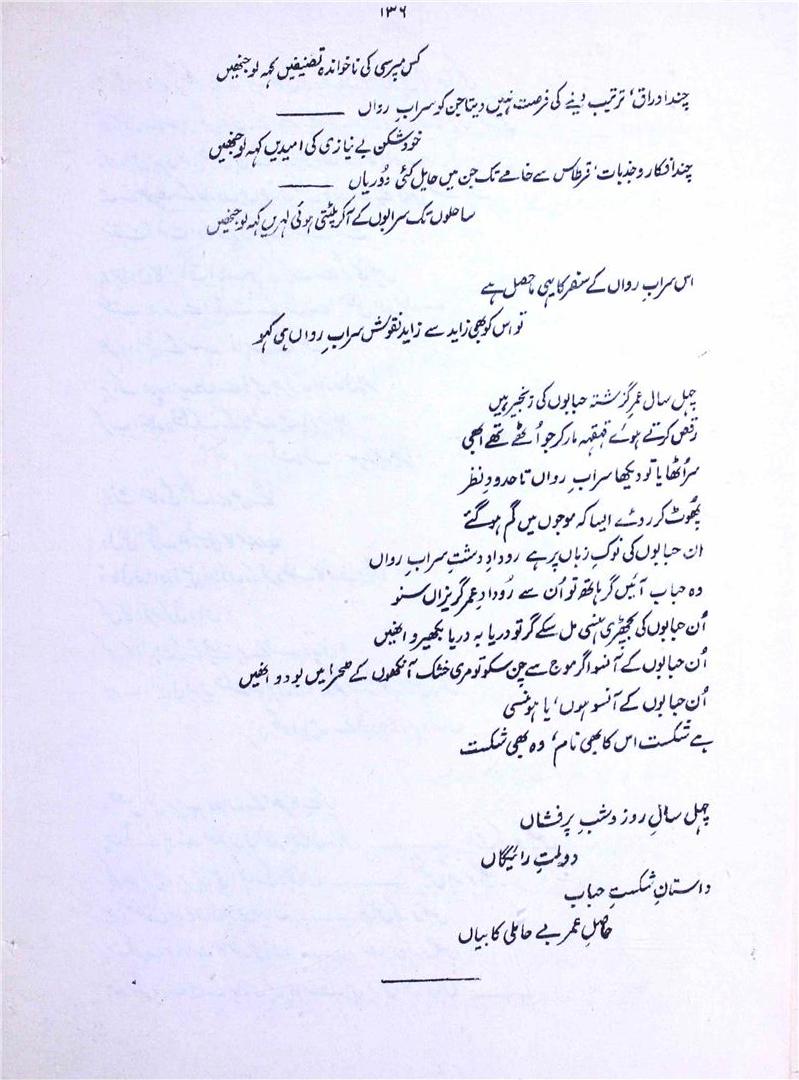 ۱۳۶
کس مپرسی کی ناخواندہ تصنیفیں کہہ لو جنھیں
چند اوراق، ترتیب دینے کی فرصت نہیں دیتا جن کو سرابِ رواں ———
خود شکن بے نیازی کی امیدیں کہہ لو جنھیں
چند افکار و جذبات، قرطاس سے خامے تک جن میں حایل کئی دُوریاں ———
ساحلوں تک سرابوں کے آکر پلٹتی ہوئی لہریں کہہ لو جنھیں
اس سرابِ رواں کے سفر کا یہی ماحصل ہے
تو اس کو بھی زاید سے زاید نقوشِ سرابِ رواں ہی کہو
چہل سال عمرِ گزشتہ حبابوں کی زنجیر ہیں
رقص کرتے ہوئے قہقہہ مار کر جو اُٹھے تھے ابھی
سر اُٹھایا تو دیکھا سرابِ رواں تا حدودِ نظر
پھُوٹ کر روئے ایسا کہ موجوں میں گم ہو گئے
ان حبابوں کی نوکِ زباں پر ہے رودادِ دشتِ سرابِ رواں
وہ حباب آئیں گر ہاتھ تو اُن سے رُودادِ عمرِ گریزاں سنو
اُن حبابوں کی بچھڑی ہنسی مل سکے گر تو دریا بہ دریا بکھیرو انھیں
اُن حبابوں کے آنسو اگر موج سے چن سکو تو مری خشک آنکھوں کے صحرا میں بو دو انھیں
اُن حبابوں کے آنسو ہوں، یا ہو ہنسی
ہے شکست اس کا بھی نام، وہ بھی شکست
چہل سالِ روز و شبِ پرفشاں
دولتِ رائیگاں
داستانِ شکستِ حباب
حاصلِ عمرِ بے حاصلی کا بیاں